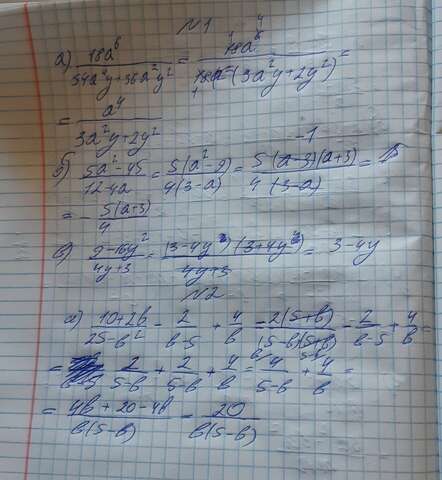 N1
а) 18a⁶ / 54a⁴y+36a²y² = 18a⁶ / 18a²(3a²y+2y²) =
= a⁴ / 3a²y+2y²
-1
б) 5a²-45 / 12-4a = 5(a²-9) / 4(3-a) = 5(a-3)(a+3) / 4(3-a) =
= - 5(a+3) / 4
в) 9-16y² / 4y+3 = (3-4y)(3+4y) / 4y+3 = 3-4y
N2
а) 10+2b / 25-b² - 2 / b-5 + 4 / b = 2(5+b) / (5-b)(5+b) - 2 / b-5 + 4 / b =
= 2 / 5-b + 2 / 5-b + 4 / b = 4 / 5-b + 4 / b =
= 4b+20-4b / b(5-b) = 20 / b(5-b)